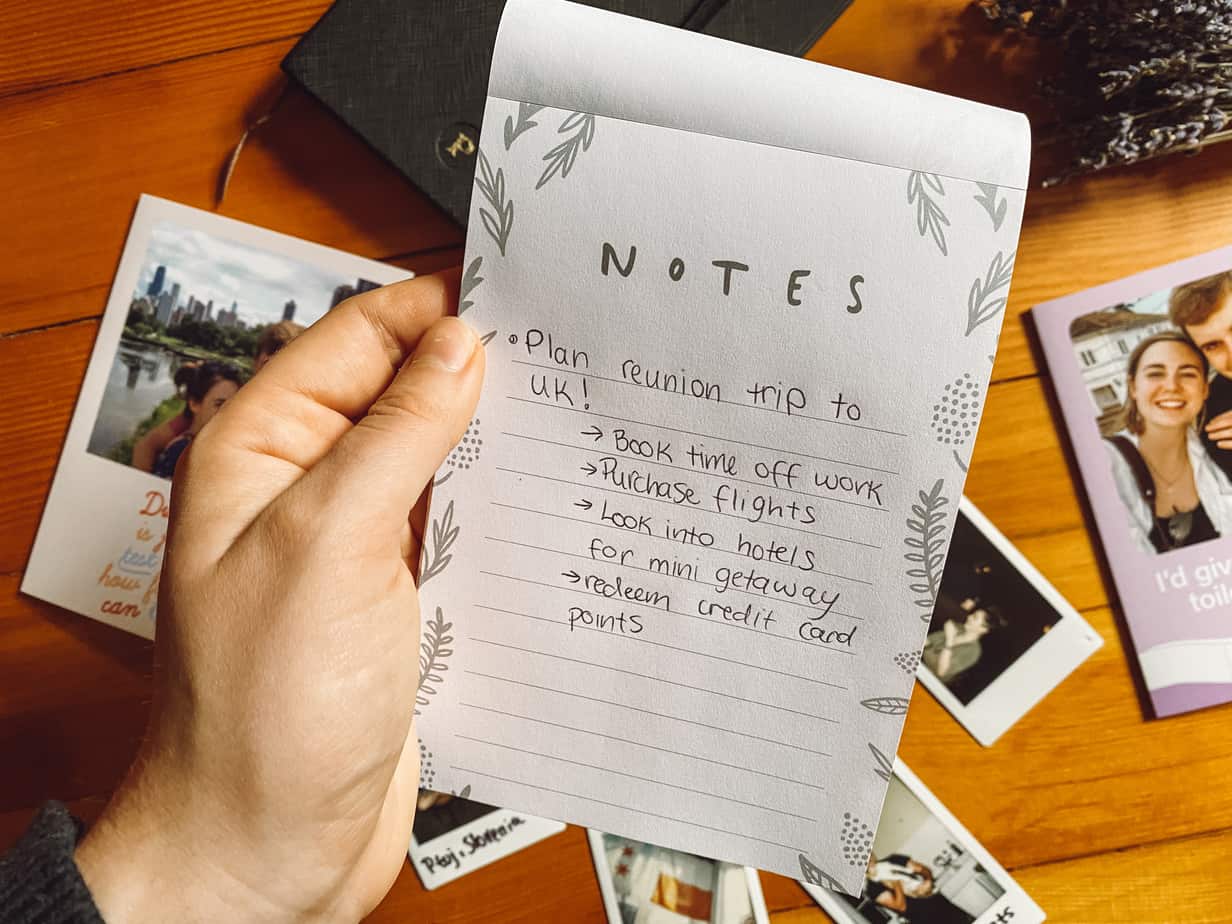 NOTES
• Plan reunion trip to
UK!
→ Book time off work
→ Purchase flights
→ Look into hotels
for mini getaway
→ redeem credit card
points
is
how
can
I'd giv
Ptuj, Slovenia